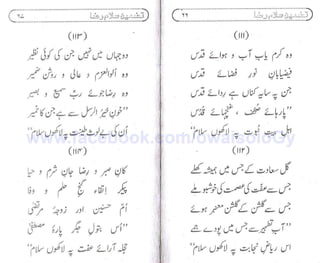 تضمین سلام رضا
۲۶
(۱۱۱)
وہ کرم یاب آب و ہوائے قدس
فیضیاب نور فضائے قدس
جن پہ سایہ کناں ہے ردائے قدس
"پارہائے صحف، غنچہائے قدس
اہل بیت نبوت پہ لاکھوں سلام"
(۱۱۲)
گل سعادت کے جس میں ہمیشہ کھلے
جس سے عفت کی عصمت کی خوشبو ملے
جس سے گلشن کے گلشن معطر ہوئے
"آب تطہیر سے جس میں پودے جمے
اس ریاض نجابت پہ لاکھوں سلام"
۲۷
تضمین سلام رضا
(۱۱۳)
دو جہاں میں نہیں جن کی کوئی نظیر
وہ اولوالعزم و عالی و روشن ضمیر
وہ رضا جوئے رب سمیع و بصیر
"خون خیر الرسل سے ہے جن کا خمیر
ان کی بے لوث طینت پہ لاکھوں سلام"
(۱۱۴)
کان صبر و رضا جان شرم و حیا
پیکر اتقاء گنج حلم و وفا
ام حسنین اور زوجہ مرتضیٰ
"اس بتول جگر پارۂ مصطفیٰ
حجلہ آرائے عفت پہ لاکھوں سلام"
www.facebook.com/owaisoloGy